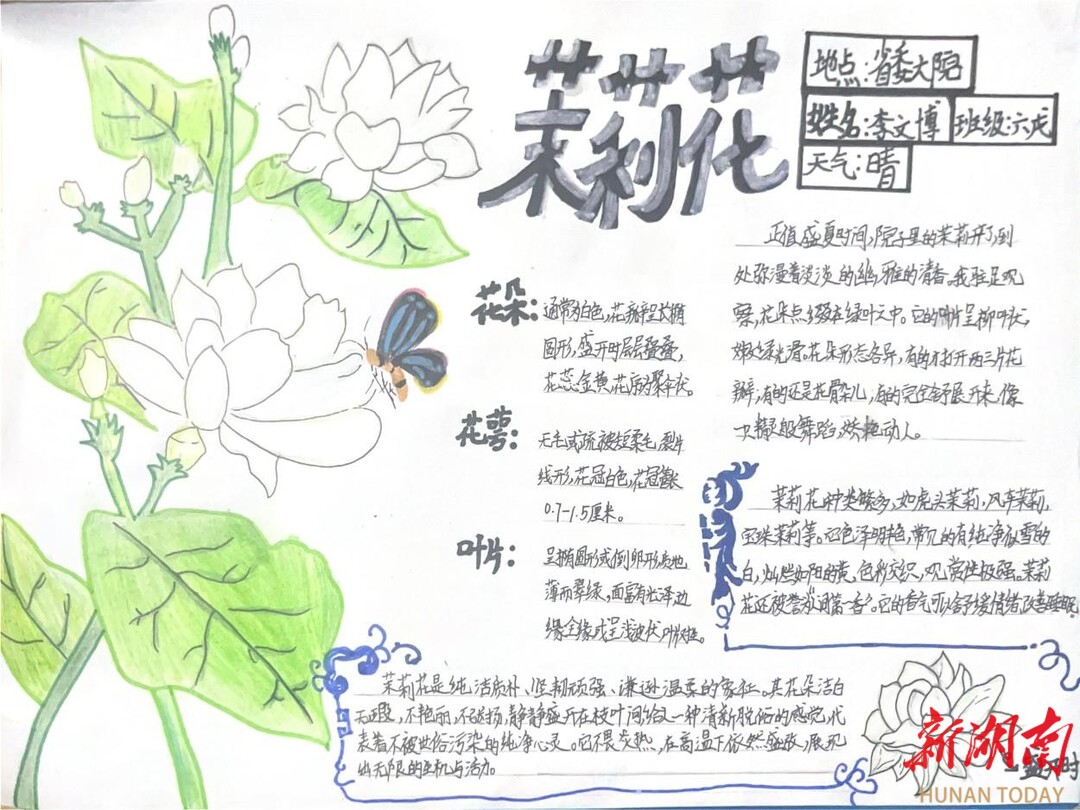 茉莉花
地点:省委大院
姓名:李文博 班级:六戊
天气:晴
正值盛夏时间,院子里的茉莉开了,到
处弥漫着淡淡的幽雅的清香。我驻足观
察,花朵点缀在绿叶之中。它的叶片呈柳叶状,
嫩绿光滑。花朵形态各异,有的才打开两三片花
瓣,有的还是花骨朵儿,有的完全舒展开来,像
般舞蹈,动人。
花朵:
通常为白色,花瓣呈长椭
圆形,盛开时层层叠叠,
花蕊金黄,花房为聚伞状。
花萼:
无毛或疏被短柔毛,裂片
线形,花冠白色,花冠管长
0.7-1.5厘米。
叶片:
呈椭圆形或倒卵形,质地
薄而翠绿,面富有光泽,边
缘全缘或呈浅波状,叶对生。
茉莉花种类繁多,如虎头茉莉,风车茉莉,
宝珠茉莉等。它色泽明艳,常见的有纯净似雪的
白,灿烂如阳的黄,色彩交织,观赏性极强。茉莉
花还被誉为人间第一香。它的香气可以舒缓情绪,改善睡眠。
茉莉花是纯洁质朴、坚韧顽强、谦逊温柔的象征。其花朵洁白
无瑕,不艳丽,不张扬,静静盛开在枝叶间,给人一种清新脱俗的感觉,代
表着不被世俗污染的纯净心灵。它不畏炎热,在高温下依然盛放,展现
出无限的生机与活力。
盛开时
新湖南
HUNAN TODAY